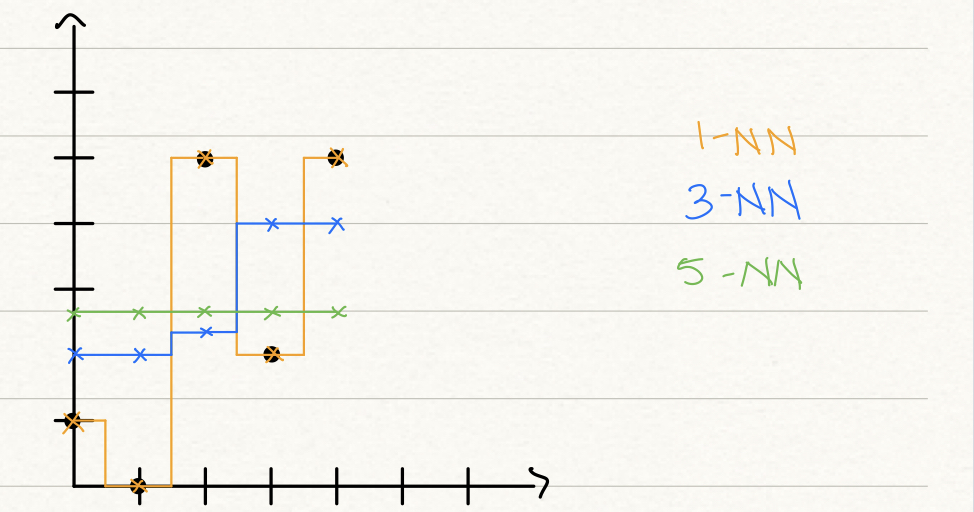 1-NN
3-NN
5-NN